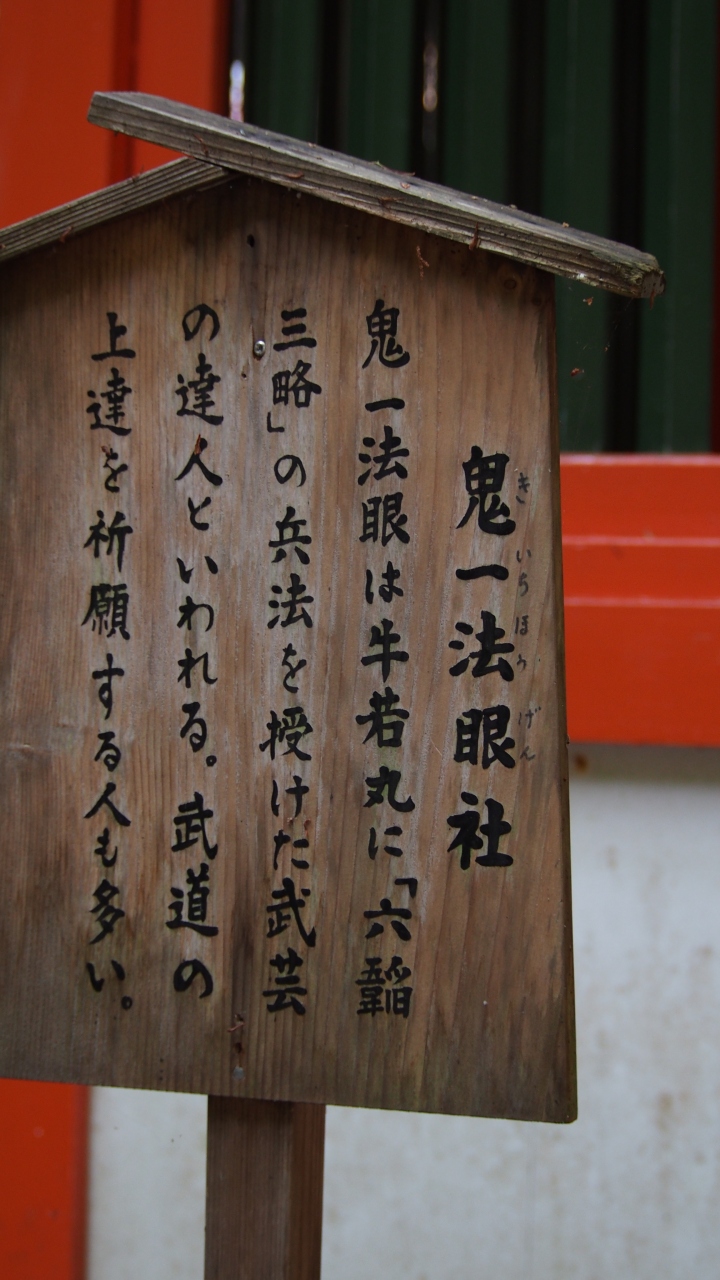 鬼一法眼社
きいちほうげん
鬼一法眼は牛若丸に「六韜
三略」の兵法を授けた武芸
の達人といわれる。武道の
上達を祈願する人も多い。